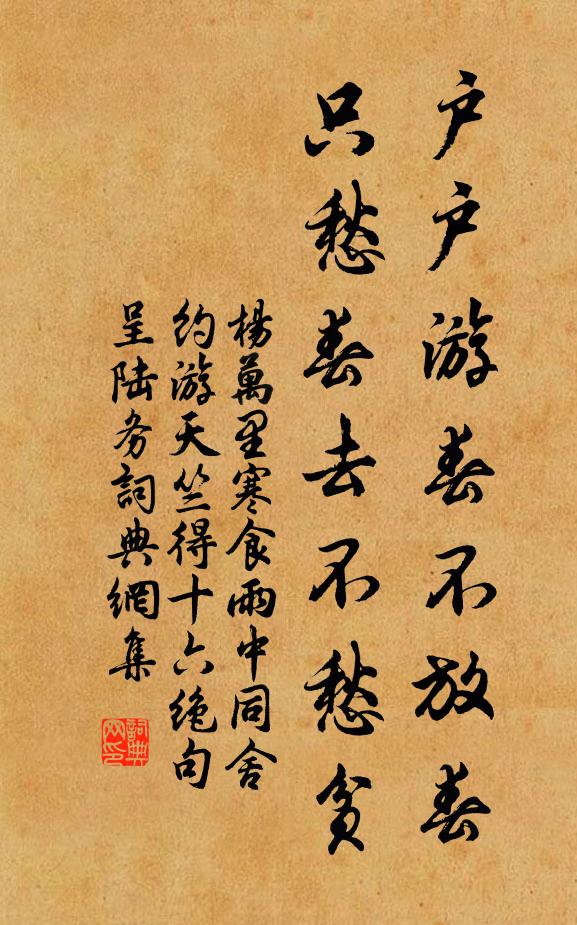 户户游春不放春
只愁春去不愁貧
楊萬里寒食雨中同舍
約游天竺得十六绝句
呈陆务詞典網集
詞典
网印